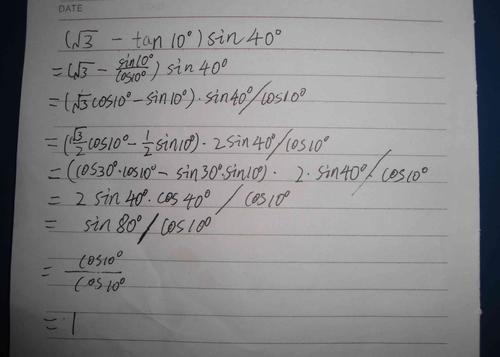 DATE
(√3 - tan10°) sin40°
= (√3 - sin10°/cos10°) sin40°
= (√3cos10° - sin10°)·sin40°/cos10°
= (√3/2 cos10° - 1/2 sin10°)·2sin40°/cos10°
= (cos30°·cos10° - sin30°·sin10°)·2·sin40°/cos10°
= 2sin40°·cos40°/cos10°
= sin80°/cos10°
= cos10°/cos10°
= 1